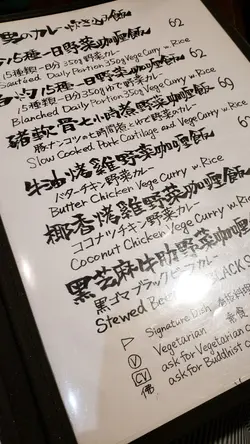 62
15種類一日分350g野菜カレー
Sautéed Daily Portion 350g Vege Curry w Rice
15種一日野菜咖喱飯 62
15種類一日分350gゆで野菜カレー
Blanched Daily Portion 350g Vege Curry w Rice
豬軟骨七小時煮野菜咖喱飯 69
豚ナンコツの七時間煮込みで野菜カレー
Slow Cooked Pork Cartilage and Vege Curry w R
牛油烤雞野菜咖喱飯 6
バターチキン野菜カレー
Butter Chicken Vege Curry w Rice
椰香烤雞野菜咖喱飯
ココナツチキン野菜カレー
Coconut Chicken Vege Curry w Ri
黑芝麻牛肋野菜咖
黒ゴマブラックビーフカレー
Stewed Be
LACK S
Signature Dish
Ⓥ Vegetarian 素食
CV ask for Vegetarian
佛 ask for Buddhist